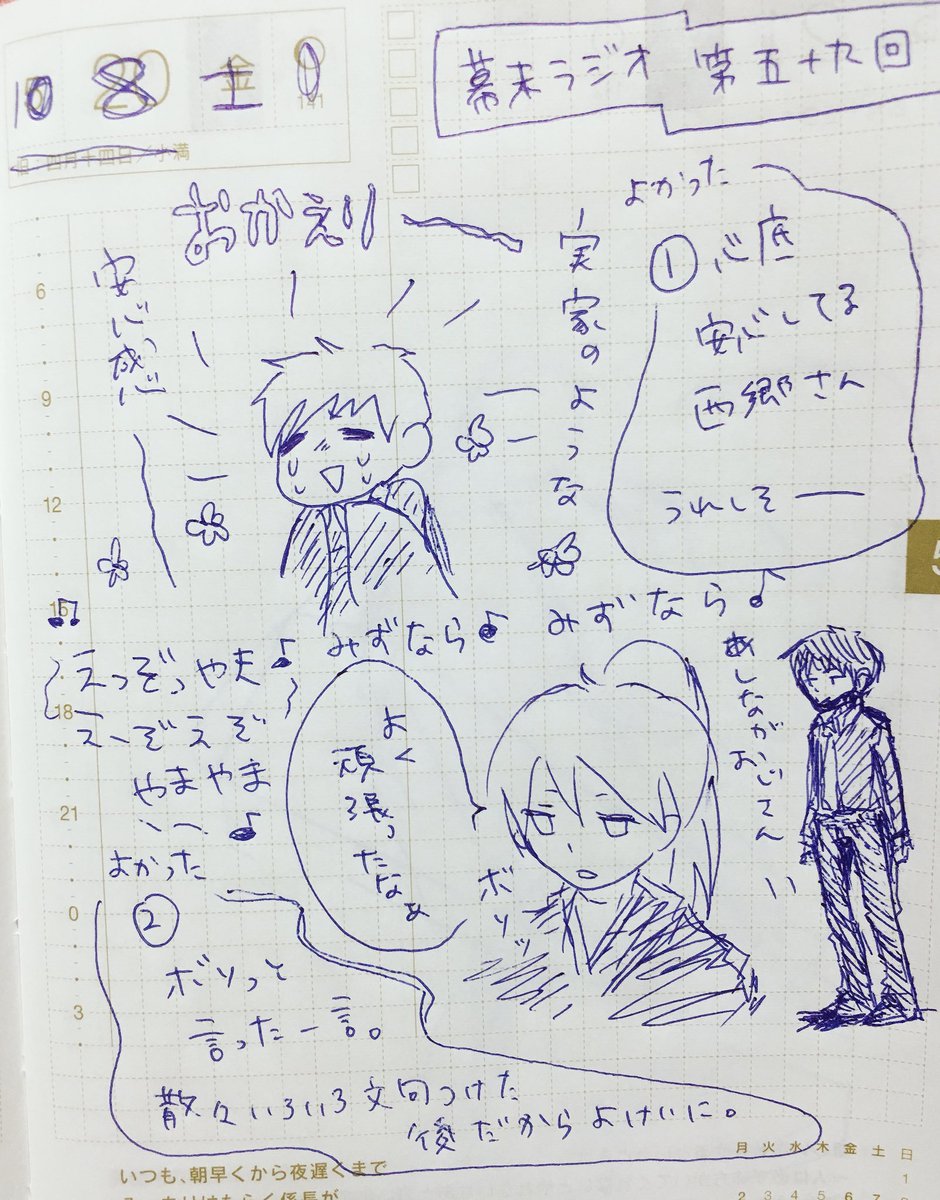 10 8 土
四月十四日/小満
幕末ラジオ 第五十九回
おかえりー
安心感
実家のような
よかった
① 心底
安心してる
西郷さん
うれしそー
6
9
12
18
21
0
3
えっぞっや夫♪
みずなら♪ みずなら♪
えーぞえぞ
やまやま
〜♪
あしながおじさん
い
よく
頑張ったなぁ
ボソッ
よかった
②
ボソっと
言った一言。
散々いろいろ文句つけた
後だからよけいに。
月 火 水 木 金 土 日
1
2 3 4 5 6 7 8
いつも、朝早くから夜遅くまで